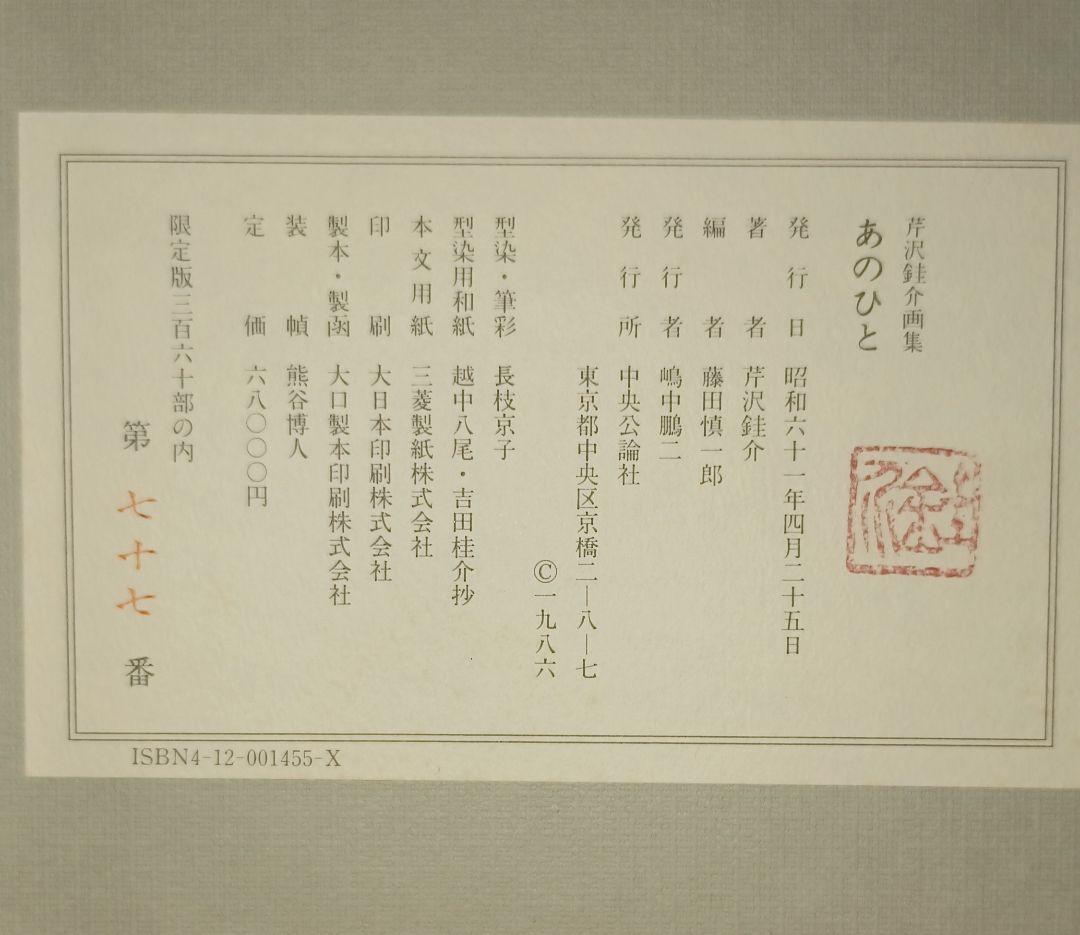 芹沢銈介画集
あのひと
発行日 昭和六十一年四月二十五日
著者 芹沢銈介
編者 藤田慎一郎
発行者 嶋中鵬二
発行所 中央公論社
東京都中央区京橋二―八―七
©一九八六
型染・筆彩 長枝京子
型染用和紙 越中八尾・吉田桂介抄
本文用紙 三菱製紙株式会社
印刷 大日本印刷株式会社
製本・製函 大口製本印刷株式会社
装幀 熊谷博人
定価 六八〇〇〇円
限定版三百六十部の内
第 七十七 番
ISBN4-12-001455-X